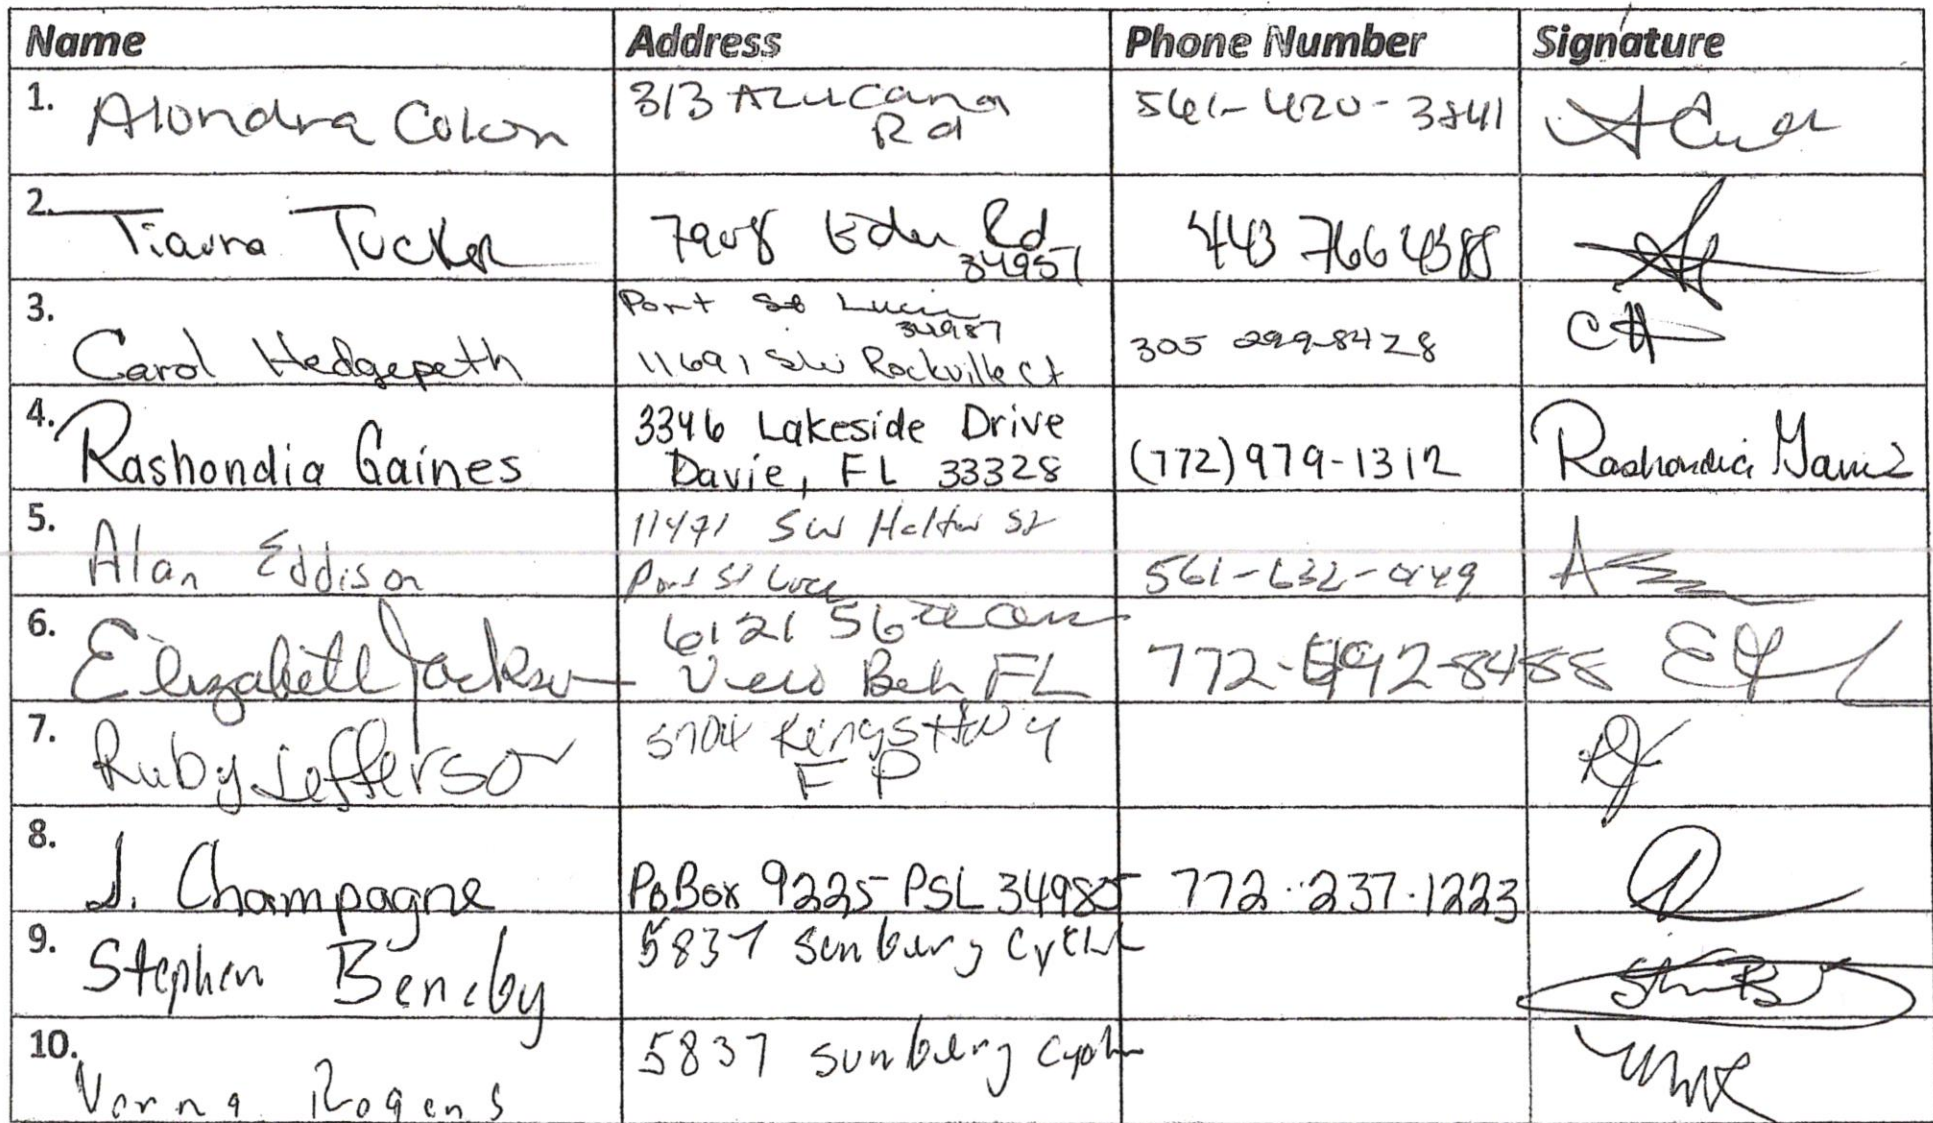 Name Address Phone Number Signature
1. Alondra Colon 313 Azucana Rd 561-420-3841
2. Tiavna Tucker 7908 Eden Rd 34951 443 766 4388
3. Carol Hedgepeth Port St Lucie 34987 11691 SW Rockville Ct 305 299-8428 CH
4. Rashondia Gaines 3346 Lakeside Drive Davie, FL 33328 (772) 979-1312 Rashondia Gaines
5. Alan Eddison 11471 SW Halton St Port St Lucie 561-632-0149
6. Elizabeth Jackson 6121 56 Vero Bch FL 772-492-8488 EJ
7. Ruby Jefferson 5704 Kings HWY FP RJ
8. J. Champagne Po Box 9225 PSL 34985 772-237-1223
9. Stephen Beneby 5837 Sunberg
10. Verna Rogens 5837 Sunberg